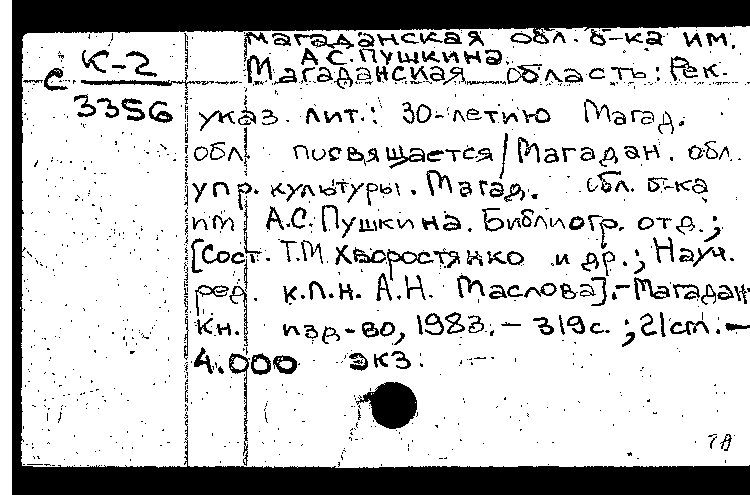 Магаданская обл. б-ка им.
А.С. Пушкина.
Магаданская область: Рек.
с К-2
3356
указ. лит.: 30-летию Магад.
обл. посвящается/Магадан. обл.
упр. культуры. Магад. обл. б-ка
им А.С. Пушкина. Библиогр. отд.;
[Сост. Т.М Хворостянко и др.; Науч.
ред. к.п.н. А.Н. Маслова].-Магадан:
Кн. изд-во, 1983. - 319с.; 21см. -
4.000 экз.